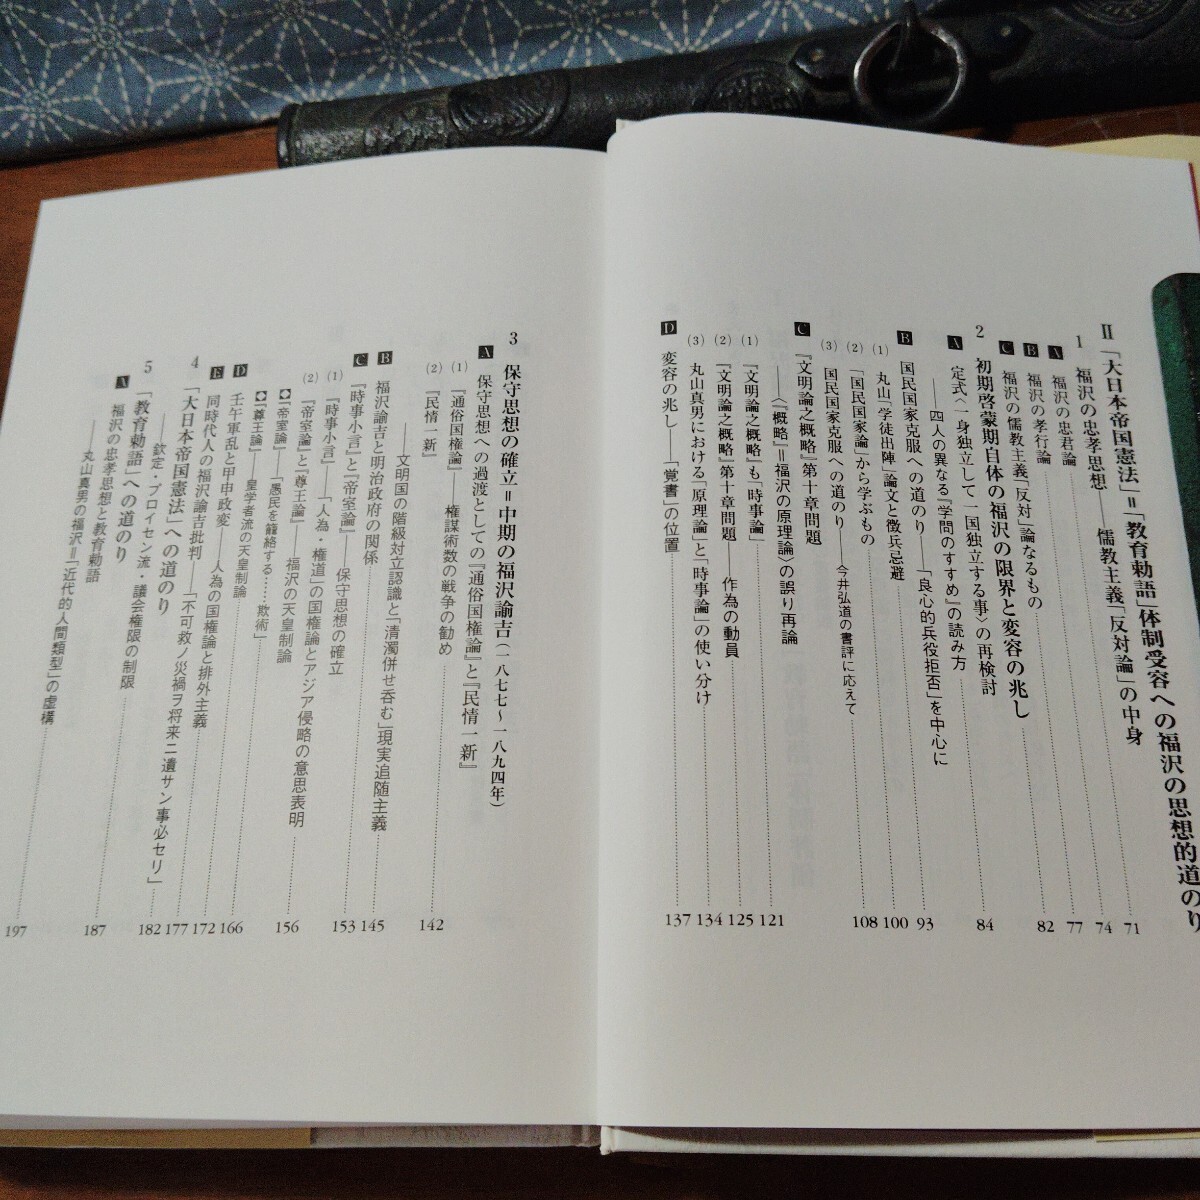 Ⅱ 「大日本帝国憲法」＝「教育勅語」体制受容への福沢の思想的道のり
1 福沢の忠孝思想 儒教主義「反対論」の中身 71
A 福沢の忠君論 74
B 福沢の孝行論 77
C 福沢の儒教主義「反対」論なるもの 82
2 初期啓蒙期自体の福沢の限界と変容の兆し
A 定式〈一身独立して一国独立する事〉の再検討 84
――四人の異なる『学問のすすめ』の読み方
B 国民国家克服への道のり――「良心的兵役拒否」を中心に 93
(1) 丸山「学徒出陣」論文と徴兵忌避 100
(2) 「国民国家論」から学ぶもの 108
(3) 国民国家克服への道のり――今井弘道の書評に応えて
C 『文明論之概略』第十章問題
――〈『概略』＝福沢の原理論〉の誤り再論
(1) 『文明論之概略』も「時事論」 121
(2) 『文明論之概略』第十章問題――作為の動員 125
(3) 丸山真男における「原理論」と「時事論」の使い分け 134
D 変容の兆し――「覚書」の位置 137
3 保守思想の確立＝中期の福沢諭吉（一八七七～一八九四年）
A 保守思想への過渡としての『通俗国権論』と『民情一新』
(1) 『通俗国権論』――権謀術数の戦争の勧め
(2) 『民情一新』 142
――文明国の階級対立認識と「清濁併せ呑む」現実追随主義
B 福沢諭吉と明治政府の関係 145
C 『時事小言』と『帝室論』――保守思想の確立 153
(1) 『時事小言』――「人為・権道」の国権論とアジア侵略の意思表明
(2) 『帝室論』と『尊王論』――福沢の天皇制論 156
『帝室論』――「愚民を籠絡する……欺術」
『尊王論』――皇学者流の天皇制論
D 壬午軍乱と甲申政変――人為の国権論と排外主義 166
E 同時代人の福沢諭吉批判――「不可救ノ災禍ヲ将来ニ遺サン事必セリ」 172
4 「大日本帝国憲法」への道のり 177
――欽定・プロイセン流・議会権限の制限 182
5 「教育勅語」への道のり
A 福沢の忠孝思想と教育勅語 187
――丸山真男の福沢＝「近代的人間類型」の虚構 197